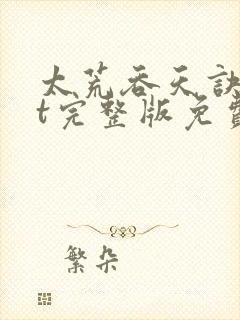 太荒吞天诀
t完整版免费
繁朵